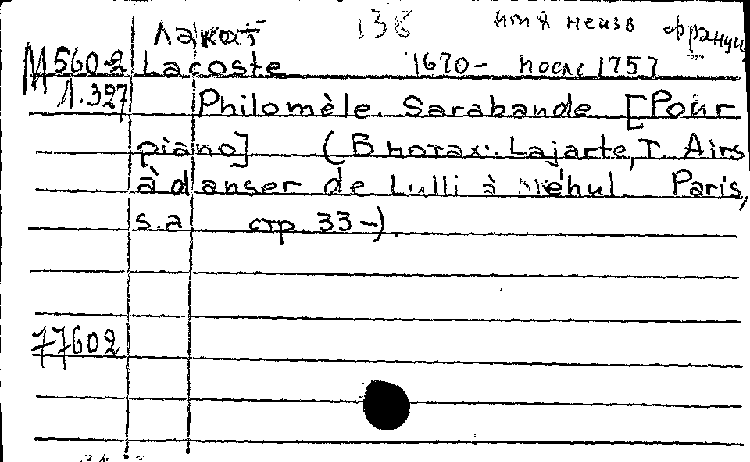 Лакост 138 имя неизв француз
М560-2 Lacoste 1670 - после 1757
Л.327 Philomèle. Sarabande [Pour
piano] (В нотах: Lajarte, T. Airs
à danser de Lulli à Méhul Paris,
s.a стр. 33-).
77602